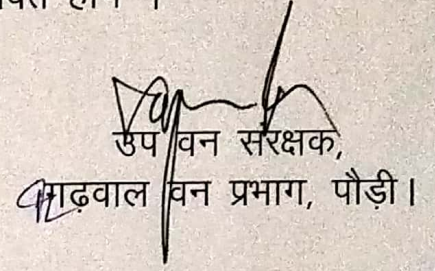 उप वन संरक्षक,
गढ़वाल वन प्रभाग, पौड़ी।